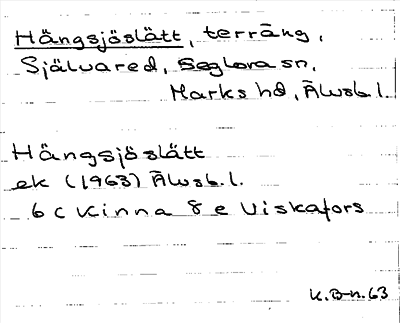 Hängsjöslätt, terräng,
Självared, Seglora sn,
Marks hd, Älvsb.l.
Hängsjö slätt
ek (1963) Älvsb.l.
6 c Kinna 8 e Viskafors
K.B-n.63